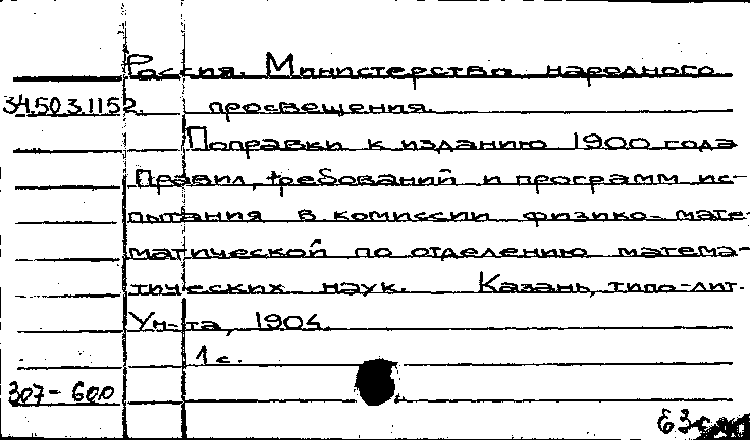 Россия. Министерство народного
34.503.1152. просвещения.
Поправки к изданию 1900 года
Правил, требований и программ ис-
пытания в комиссии физико-мате-
матической по отделению матема-
тических наук. Казань, типо-лит.
Ун-та, 1904.
1 с.
307-600